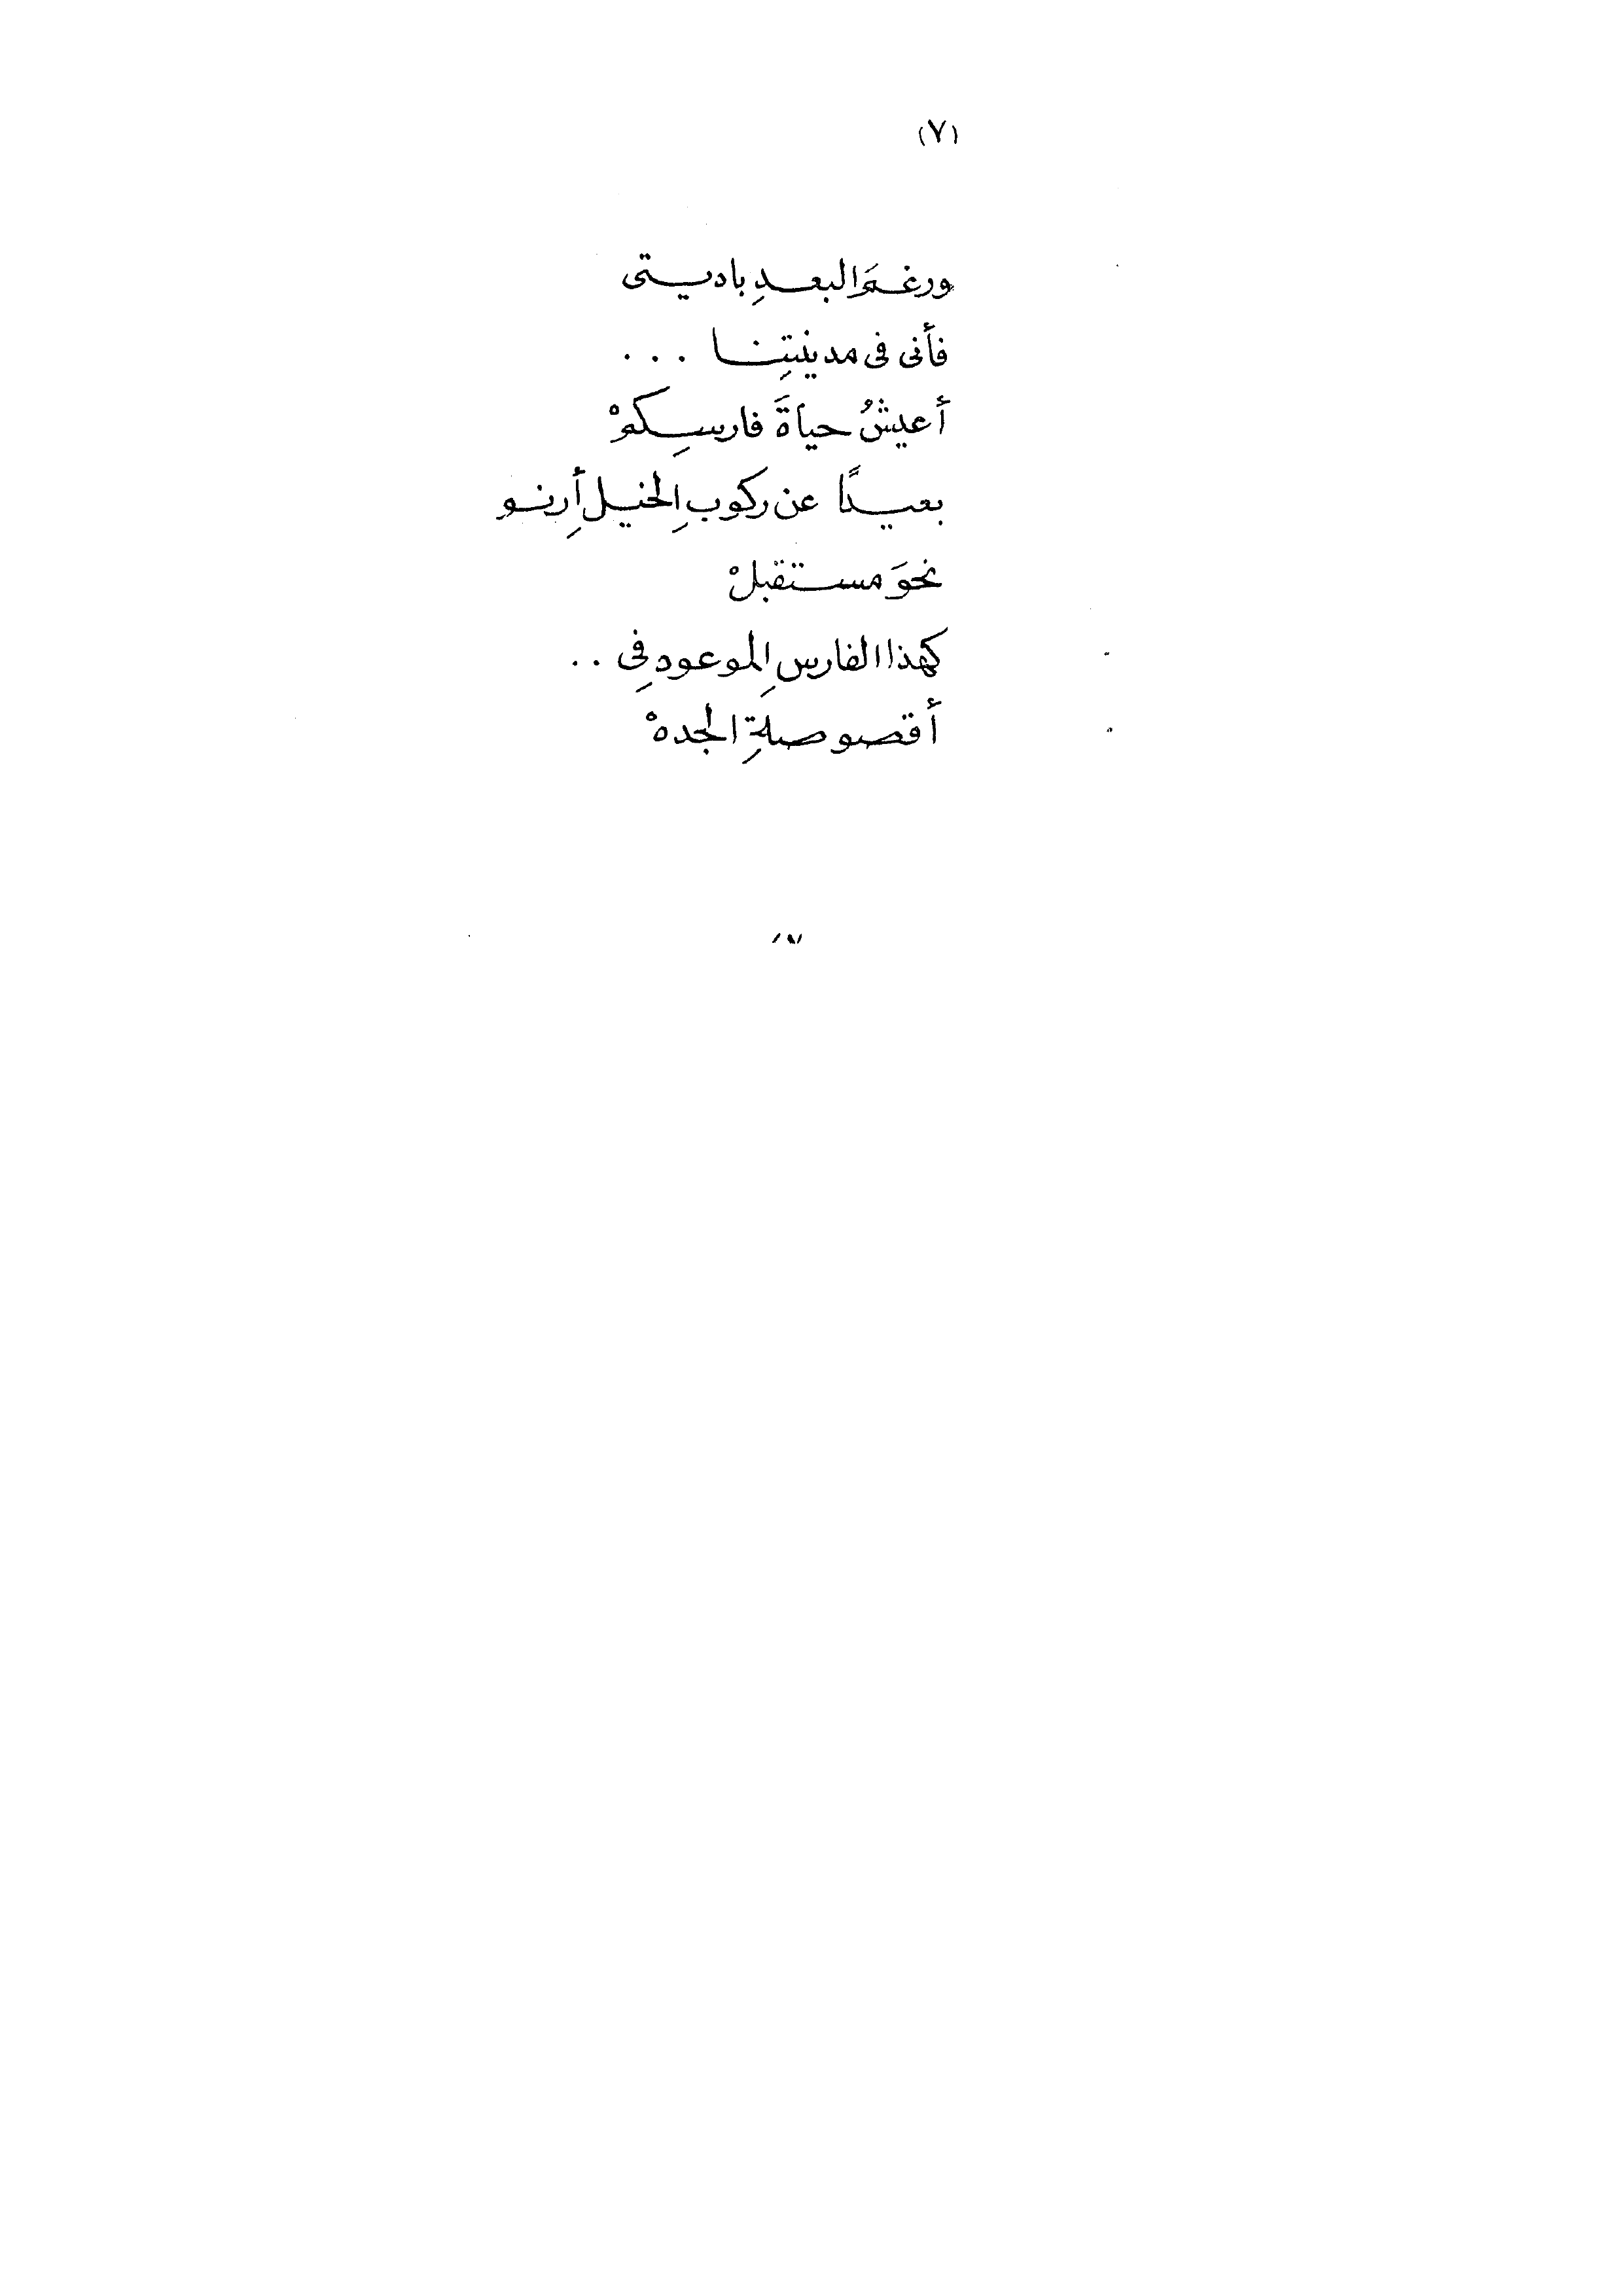 (٧)
ورغمَ البعدِ باديتى
فأنى فى مدينتِنا ...
أعيشُ حياةَ فارسِكمْ
بعيداً عن ركوبِ الخيل أرِنو
نحوَ مستقبلْ
كهذا الفارسِ الموعودِ فى ..
أقصوصةِ الجدهْ